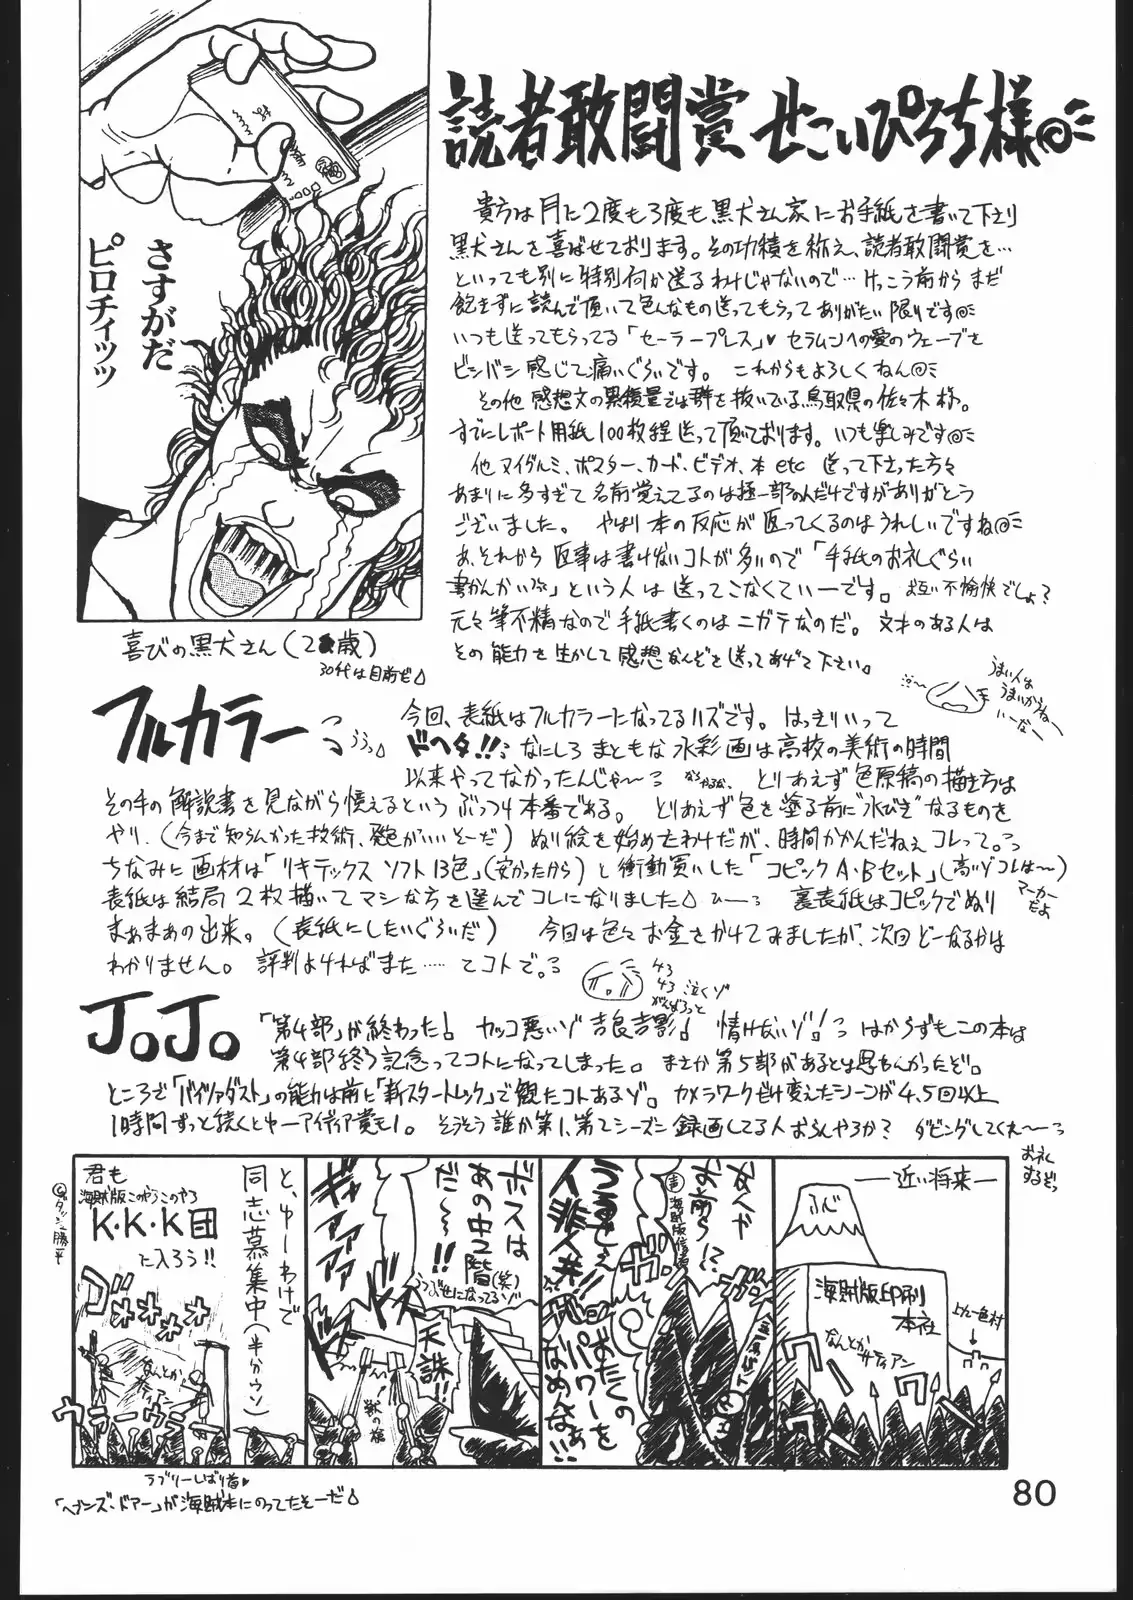 読者敢闘賞 せこいぴろち様
さすがだ
ピロチィッツ
喜びの黒犬さん(2 歳)
30代は目前だ
貴方は月に2度も3度も黒犬さん家にお手紙を書いて下さり
黒犬さんを喜ばせております。その功積を称え、読者敢闘賞を…
といっても別に特別何か送るわけじゃないので…けっこう前からまだ
飽きずに読んで頂いて色んなもの送ってもらってありがたい限りです
いつも送ってもらってる「セーラープレス」♥セラムンへの愛のウェーブを
ビンバン感じて痛いぐらいです。これからもよろしくねん
その他感想文の累積量では群を抜いている鳥取県の佐々木様。
すでにレポート用紙100枚程送って頂いております。いつも楽しみです
他ヌイグルミ、ポスター、カード、ビデオ、本etc 送って下さった方々
あまりに多すぎて名前覚えてるのは極一部のんだけですがありがとう
ございました。やはり本の反応が返ってくるのはうれしいですね
あ、それから返事は書けないコトが多いので「手紙のお礼ぐらい
書かんかいな」という人は送ってこなくていーです。お互い不愉快でしょ?
元々筆不精なので手紙書くのはニガテなのだ。文才のある人は
その能力を生かして感想なんぞを送ってあげて下さい。
うまい人は
うまいからねー
いーなー
フルカラー
今回、表紙はフルカラーになってるハズです。はっきりいって
ドヘタ!!なにしろまともな水彩画は高校の美術の時間
以来やってなかったんじゃ〜 とりあえず色原稿の描き方は
その手の解説書を見ながら憶えるというぶっつけ本番である。とりあえず色を塗る前に"水びき"なるものを
やり、(今まで知らんかった技術、発色がいいそーだ)ぬり絵を始めたわけだが、時間かかんだねぇコレって。
ちなみに画材は「リキテックス ソフト13色」(安かったから)と衝動買いした「コピックA・Bセット」(高いゾコレは〜)
マーカーだよ
表紙は結局2枚描いてマシな方を選んでコレになりました ひーっ 裏表紙はコピックでぬり
まぁまぁの出来。(表紙にしたいぐらいだ) 今回は色々お金をかけてみましたが、次回どーなるかは
わかりません。評判よければまた……てコトで。
泣くゾ
JoJo
「第4部」が終わった! カッコ悪いゾ吉良吉影! 情けないゾ! はからずもこの本は
第4部終了記念ってコトになってしまった。まさか第5部があるとは思わんかったぞ。
ところで「バイツァダスト」の能力は前に「新スタートレック」で観たコトあるゾ。カメラワークだけ変えたシーンが4,5回以上
1時間ずっと続くとゆーアイディア賞モノ。そうそう誰か第1、第2シーズン録画してる人おらんやろか? ダビングしてくれ〜っ
お礼
するぞっ
―近い将来―
ふじ
海賊版印刷
本社
上九一色村
なんとか
サティアン
なんや
お前ら!?
海賊版信者
うるせぇ
人非人共!!
おたくの
パワーを
なめんなぁ!!
ボスは
あの中2階(笑)
だ〜!!
ギャァァァァ
天誅!!
と、ゆーわけで
同志募集中(半分ウソ)
君も
海賊版このやろこのやろ
K・K・K団
に入ろう!!
なんとか
サティアン
ウラーウラー
ラブリーしばり首♥
「ヘブンズ・ドアー」が海賊本にのってたそーだ
80